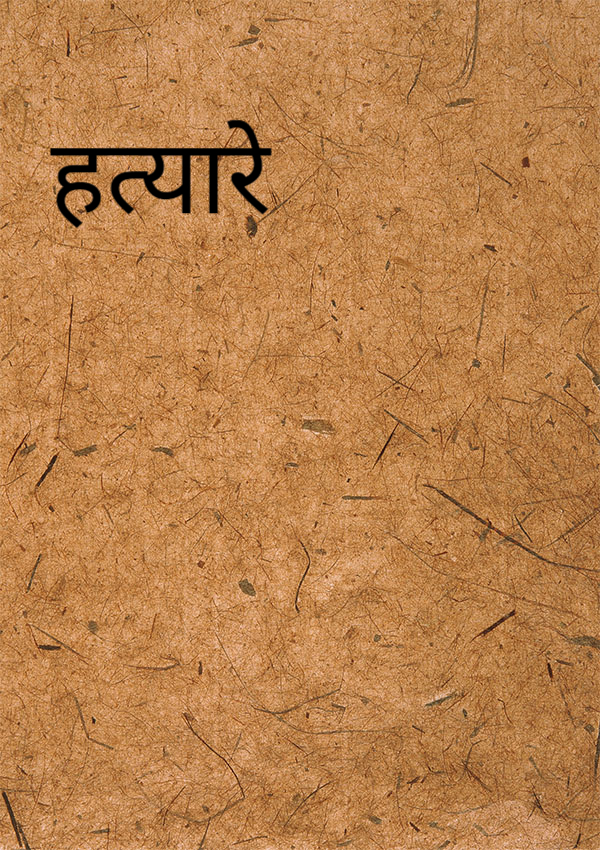 हत्यारे